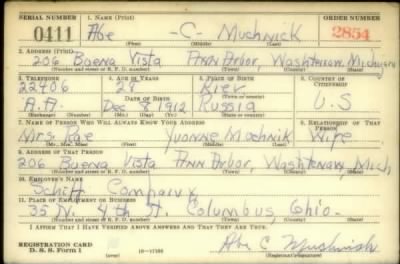 SERIAL NUMBER 1. NAME (Print) ORDER NUMBER
0411 Abe -C- Muchnick 2854
(First) (Middle) (Last)
2. ADDRESS (Print)
206 Buena Vista Ann Arbor, Washtenaw, Michigan
(Number and street or R. F. D. number) (Town) (County) (State)
3. TELEPHONE 4. AGE IN YEARS 5. PLACE OF BIRTH 6. COUNTRY OF CITIZENSHIP
22406 28 Kiev
DATE OF BIRTH
A.A. Dec 8 1912 Russia U.S
(Exchange) (Number) (Mo.) (Day) (Yr.) (State or country)
7. NAME OF PERSON WHO WILL ALWAYS KNOW YOUR ADDRESS 8. RELATIONSHIP OF THAT PERSON
Mrs. Rae Yvonne Muchnik Wife
(Mr., Mrs., Miss) (First) (Middle) (Last)
9. ADDRESS OF THAT PERSON
206 Buena Vista Ann Arbor, Washtenaw, Mich
(Number and street or R. F. D. number) (Town) (County) (State)
10. EMPLOYER'S NAME
Schiff Company
11. PLACE OF EMPLOYMENT OR BUSINESS
35 N. 4th St. Columbus, Ohio-
(Number and street or R. F. D. number) (Town) (County) (State)
I AFFIRM THAT I HAVE VERIFIED ABOVE ANSWERS AND THAT THEY ARE TRUE.
REGISTRATION CARD
D. S. S. Form 1 16-17105 Abe C Muchnick